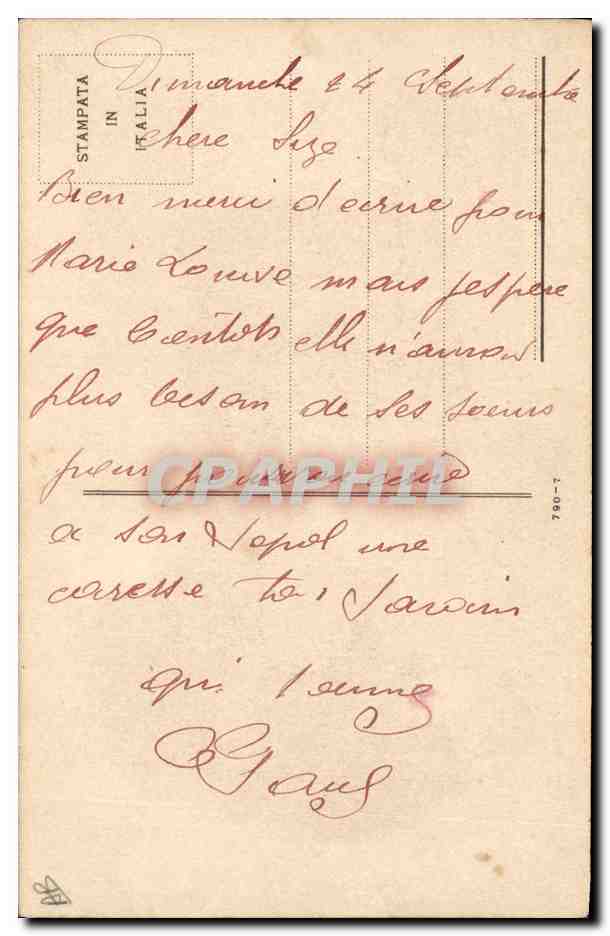 STAMPATA
IN
ITALIA
Dimanche 24 Septembre
chere Suze
Bien merci d'ecrire pour
Marie Louise mais j'espere
que bientôts elle n'aura
plus besoin de ses soeurs
pour
CPAPHIL
a son une
caresse ta
qui t'aime
Paul
790-7
AB